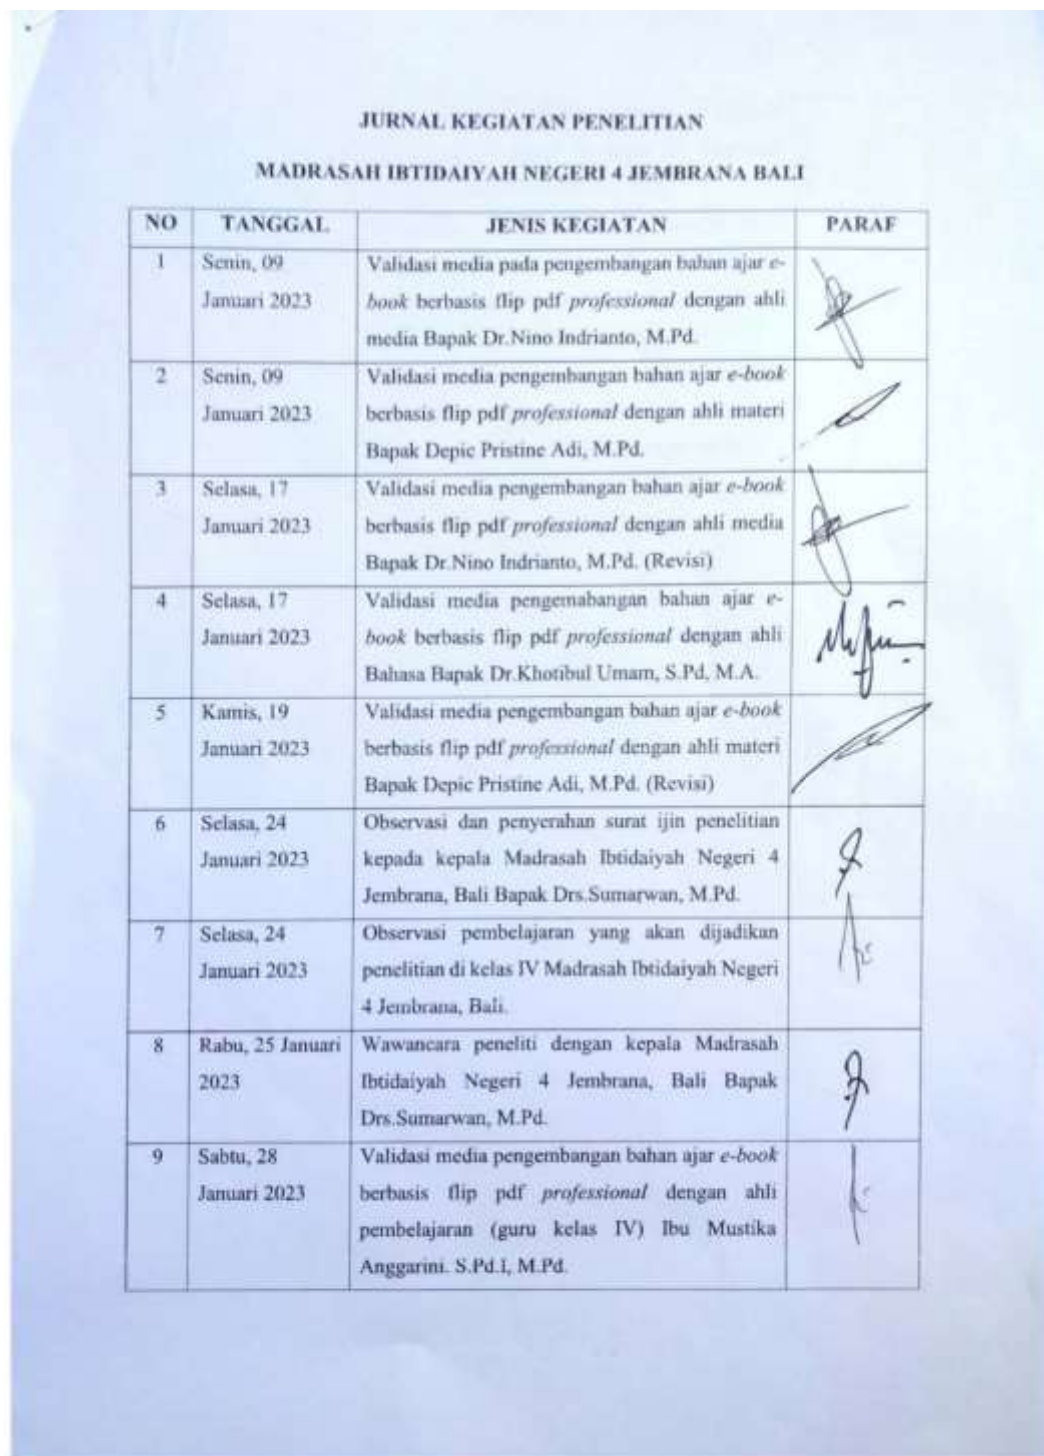 JURNAL KEGIATAN PENELITIAN
MADRASAH IBTIDAIYAH NEGERI 4 JEMBRANA BALI
NO TANGGAL JENIS KEGIATAN PARAF
1 Senin, 09 Validasi media pada pengembangan bahan ajar e-
Januari 2023 book berbasis flip pdf professional dengan ahli
media Bapak Dr.Nino Indrianto, M.Pd.
2 Senin, 09 Validasi media pengembangan bahan ajar e-book
Januari 2023 berbasis flip pdf professional dengan ahli materi
Bapak Depic Pristine Adi, M.Pd.
3 Selasa, 17 Validasi media pengembangan bahan ajar e-book
Januari 2023 berbasis flip pdf professional dengan ahli media
Bapak Dr.Nino Indrianto, M.Pd. (Revisi)
4 Selasa, 17 Validasi media pengemabangan bahan ajar e-
Januari 2023 book berbasis flip pdf professional dengan ahli
Bahasa Bapak Dr.Khotibul Umam, S.Pd, M.A.
5 Kamis, 19 Validasi media pengembangan bahan ajar e-book
Januari 2023 berbasis flip pdf professional dengan ahli materi
Bapak Depic Pristine Adi, M.Pd. (Revisi)
6 Selasa, 24 Observasi dan penyerahan surat ijin penelitian
Januari 2023 kepada kepala Madrasah Ibtidaiyah Negeri 4
Jembrana, Bali Bapak Drs.Sumarwan, M.Pd.
7 Selasa, 24 Observasi pembelajaran yang akan dijadikan
Januari 2023 penelitian di kelas IV Madrasah Ibtidaiyah Negeri
4 Jembrana, Bali.
8 Rabu, 25 Januari Wawancara peneliti dengan kepala Madrasah
2023 Ibtidaiyah Negeri 4 Jembrana, Bali Bapak
Drs.Sumarwan, M.Pd.
9 Sabtu, 28 Validasi media pengembangan bahan ajar e-book
Januari 2023 berbasis flip pdf professional dengan ahli
pembelajaran (guru kelas IV) Ibu Mustika
Anggarini. S.Pd.I, M.Pd.